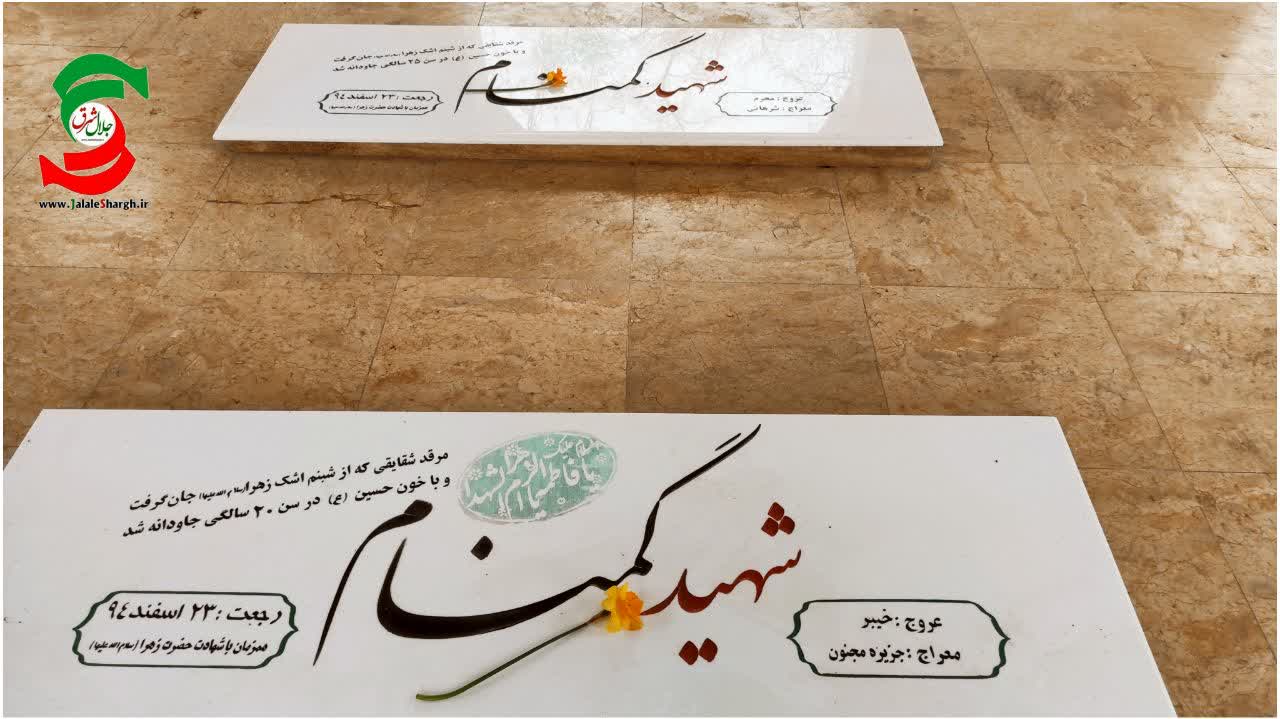 جلال شرق
www.JalaleShargh.ir
مرقد شقایقی که از شبنم اشک زهرا(سلام الله علیها) جان گرفت
و با خون حسین (ع) در سن ۲۵ سالگی جاودانه شد
شهید گمنام
عروج : محرم
معراج : شرهانی
رجعت : ۲۳ اسفند ۹٤
همزمان با شهادت حضرت زهرا (سلام الله علیها)
مرقد شقایقی که از شبنم اشک زهرا(سلام الله علیها) جان گرفت
و با خون حسین (ع) در سن ۲۰ سالگی جاودانه شد
یا فاطمة الزهرا
شهید گمنام
عروج : خیبر
معراج : جزیره مجنون
رجعت : ۲۳ اسفند ۹٤
همزمان با شهادت حضرت زهرا (سلام الله علیها)